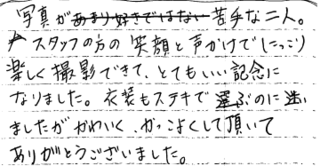 写真があまり好きではない苦手な二人。
スタッフの方の笑顔と声かけでにっこり
楽しく撮影できて、とてもいい記念に
なりました。衣装もステキで選ぶのに迷い
ましたがかわいく、かっこよくして頂いて
ありがとうございました。